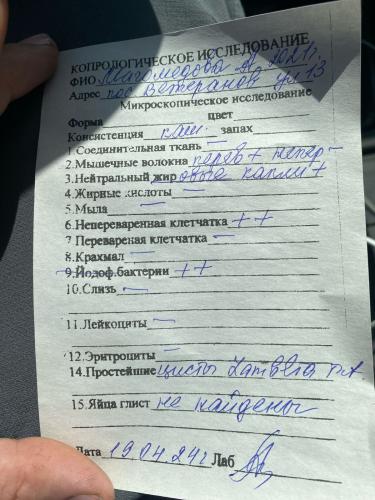 КОПРОЛОГИЧЕСКОЕ ИССЛЕДОВАНИЕ
ФИО Магомедова А. 2021г.
Адрес пос Ветеранов ул 13
Микроскопическое исследование
Форма цвет
Консистенция каш. запах
1 Соединительная ткань —
2.Мышечные волокна перев + непер —
3.Нейтральный жир капли +
4.Жирные кислоты —
5.Мыла —
6.Непереваренная клетчатка ++
7 Перевареная клетчатка —
8.Крахмал —
9.Йодоф.бактерии ++
10.Слизь —
11.Лейкоциты —
12.Эритроциты —
14.Простейшие цисты Lamblia
15.Яйца глист не найдены
Дата 19.04.24г Лаб